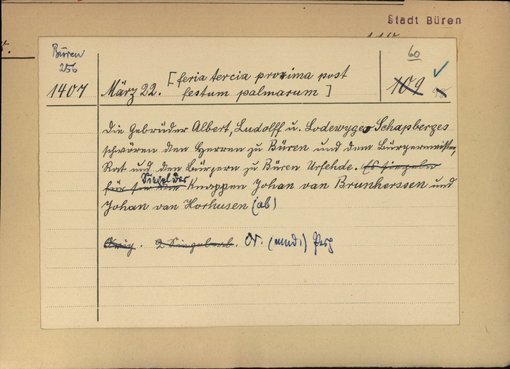 Stadt Büren
Büren
256
60
1407 März 22. [feria tercia proxima post
festum palmarum]
109
Die Gebrüder Albert, Ludolff u. Lodewyges Schapberges
schwören den Herren zu Büren und dem Bürgermeister,
Rat und den Bürgern zu Büren Urfehde. Es siegeln
für sie die Siegel der Knappen Johan van Brunherssen und
Johan van Horhusen (ab)
Orig. 2 Siegel ab. Or. (mnd.) Perg